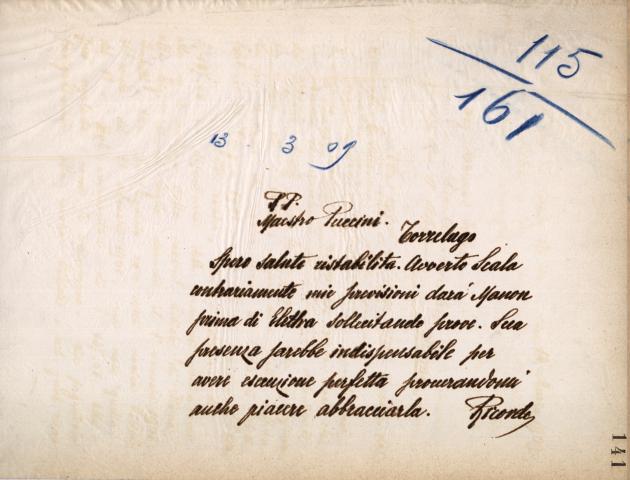 115
161
13 3 09
PP.
Maestro Puccini.
Torrelago
Spero salute ristabilita. Avverto Scala
contrariamente mie previsioni dará Manon
prima di Elettra sollecitando prove. Sua
presenza sarebbe indispensabile per
avere esecuzione perfetta procurandomi
anche piacere abbracciarla. Ricordi
141